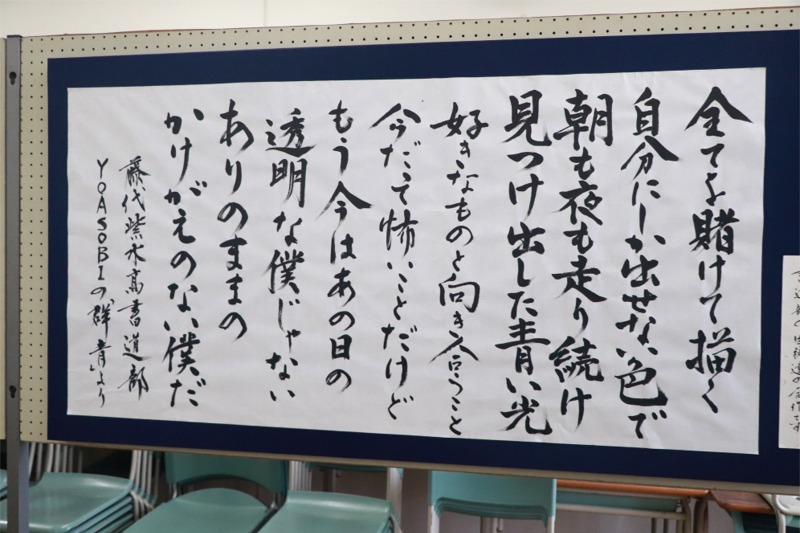 全てを賭けて描く
自分にしか出せない色で
朝も夜も走り続け
見つけ出した青い光
好きなものと向き合うこと
今だって怖いことだけど
もう今はあの日の
透明な僕じゃない
ありのままの
かけがえのない僕だ
藤代紫水高書道部
YOASOBIの「群青」より